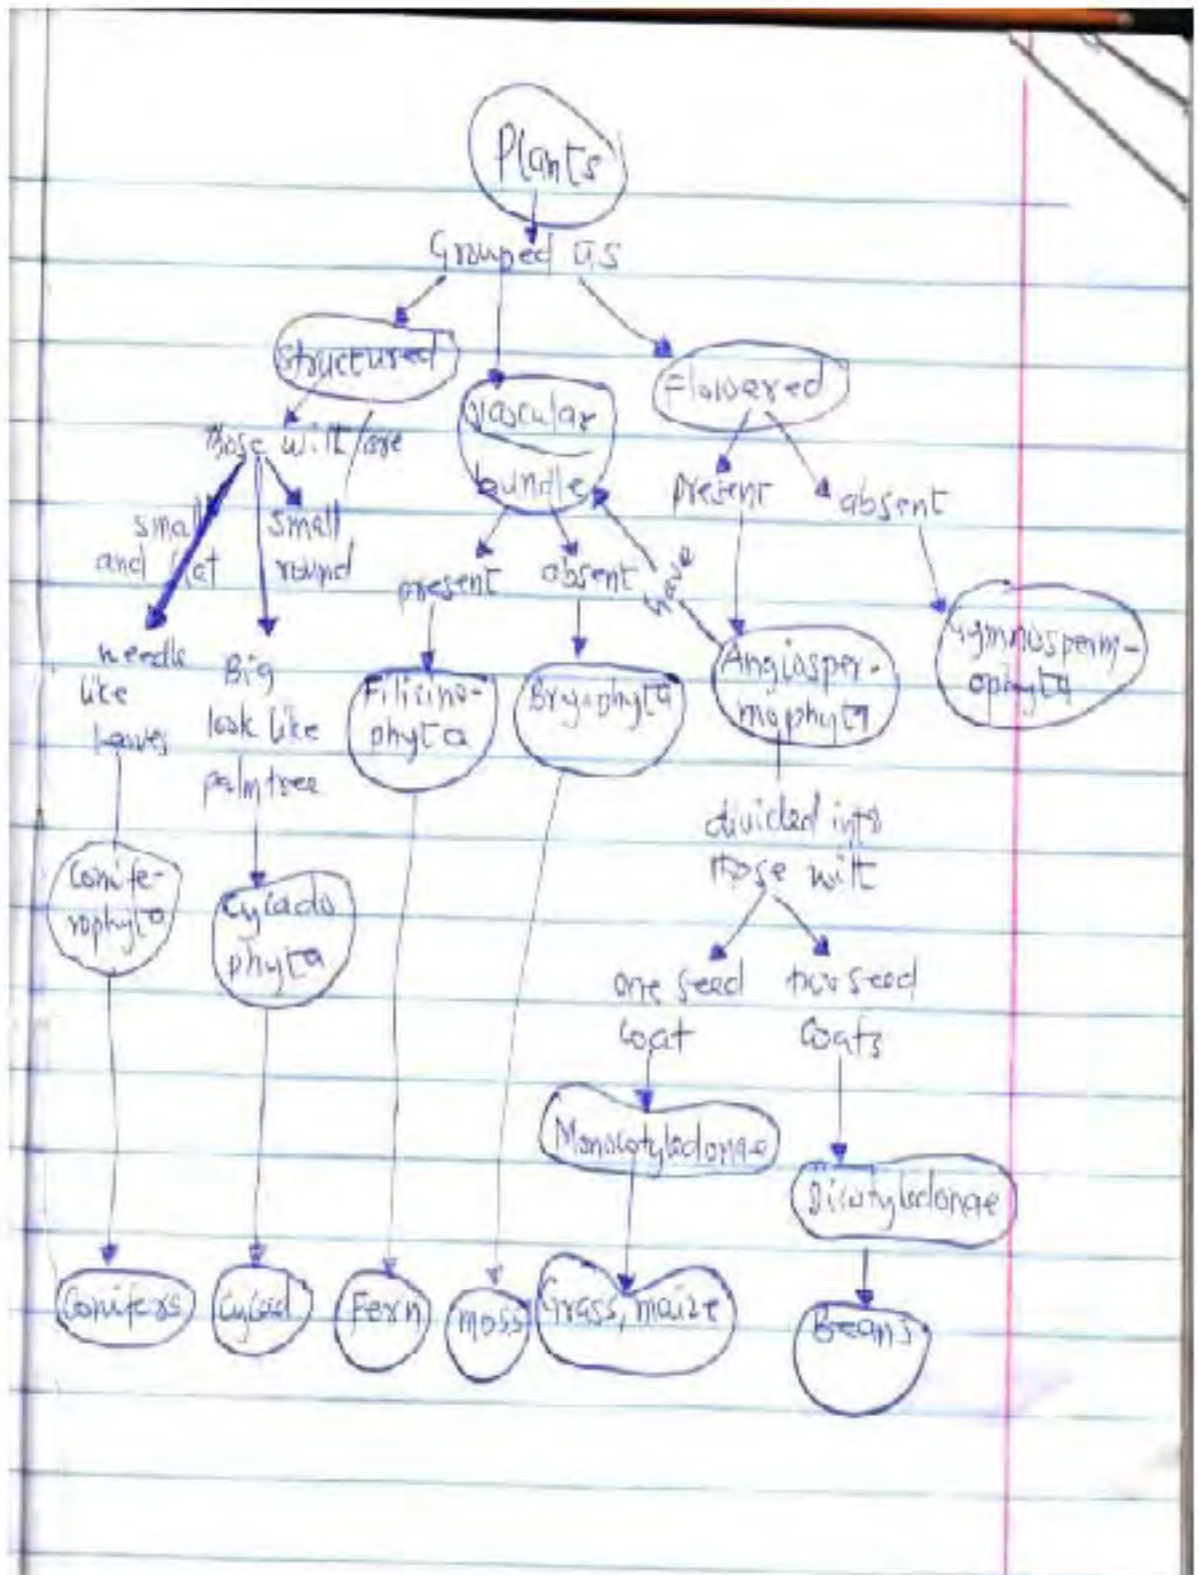 Plants
Grouped as
Structured
Vascular
bundle
Flowered
Those with/are
small
and flat
small
round
present
absent
have
present
absent
needle
like
leaves
Big
look like
palm tree
Filicino-
phyta
Bryophyta
Angiosper-
mophyta
Gymnosperm-
ophyta
divided into
those with
Conife-
rophyta
Cycado
phyta
one seed
coat
two seed
coats
Monocotyledonae
Dicotyledonae
Conifers
Cycad
Fern
moss
Grass, maize
Beans